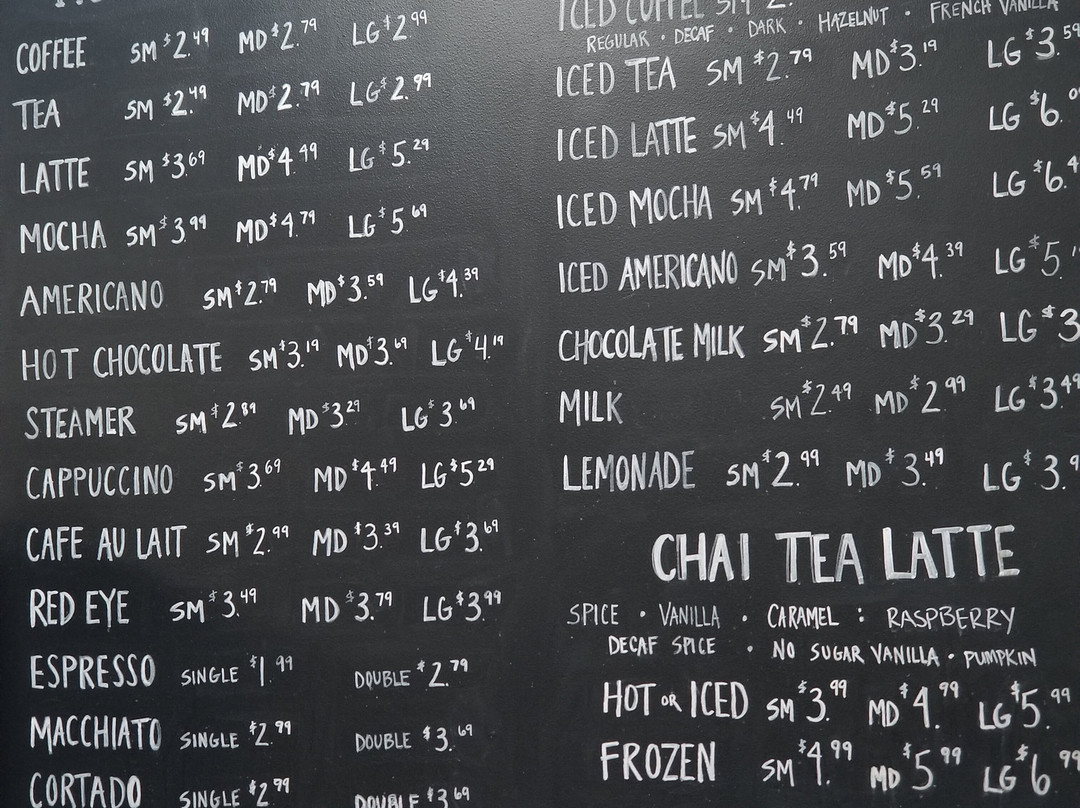 COFFEE SM $2.49 MD $2.79 LG $2.99
TEA SM $2.49 MD $2.79 LG $2.99
LATTE SM $3.69 MD $4.49 LG $5.29
MOCHA SM $3.99 MD $4.79 LG $5.69
AMERICANO SM $2.79 MD $3.59 LG $4.39
HOT CHOCOLATE SM $3.19 MD $3.69 LG $4.19
STEAMER SM $2.89 MD $3.29 LG $3.69
CAPPUCCINO SM $3.69 MD $4.49 LG $5.29
CAFE AU LAIT SM $2.99 MD $3.39 LG $3.69
RED EYE SM $3.49 MD $3.79 LG $3.99
ESPRESSO SINGLE $1.99 DOUBLE $2.79
MACCHIATO SINGLE $2.99 DOUBLE $3.69
CORTADO SINGLE $2.99 DOUBLE $3.69
ICED COFFEE SM $2.
REGULAR · DECAF · DARK · HAZELNUT · FRENCH VANILLA
ICED TEA SM $2.79 MD $3.19 LG $3.59
ICED LATTE SM $4.49 MD $5.29 LG $6.0
ICED MOCHA SM $4.79 MD $5.59 LG $6.4
ICED AMERICANO SM $3.59 MD $4.39 LG $5.
CHOCOLATE MILK SM $2.79 MD $3.29 LG $3
MILK SM $2.49 MD $2.99 LG $3.49
LEMONADE SM $2.99 MD $3.49 LG $3.9
CHAI TEA LATTE
SPICE · VANILLA · CARAMEL : RASPBERRY
DECAF SPICE · NO SUGAR VANILLA · PUMPKIN
HOT OR ICED SM $3.99 MD $4.99 LG $5.99
FROZEN SM $4.99 MD $5.99 LG $6.99